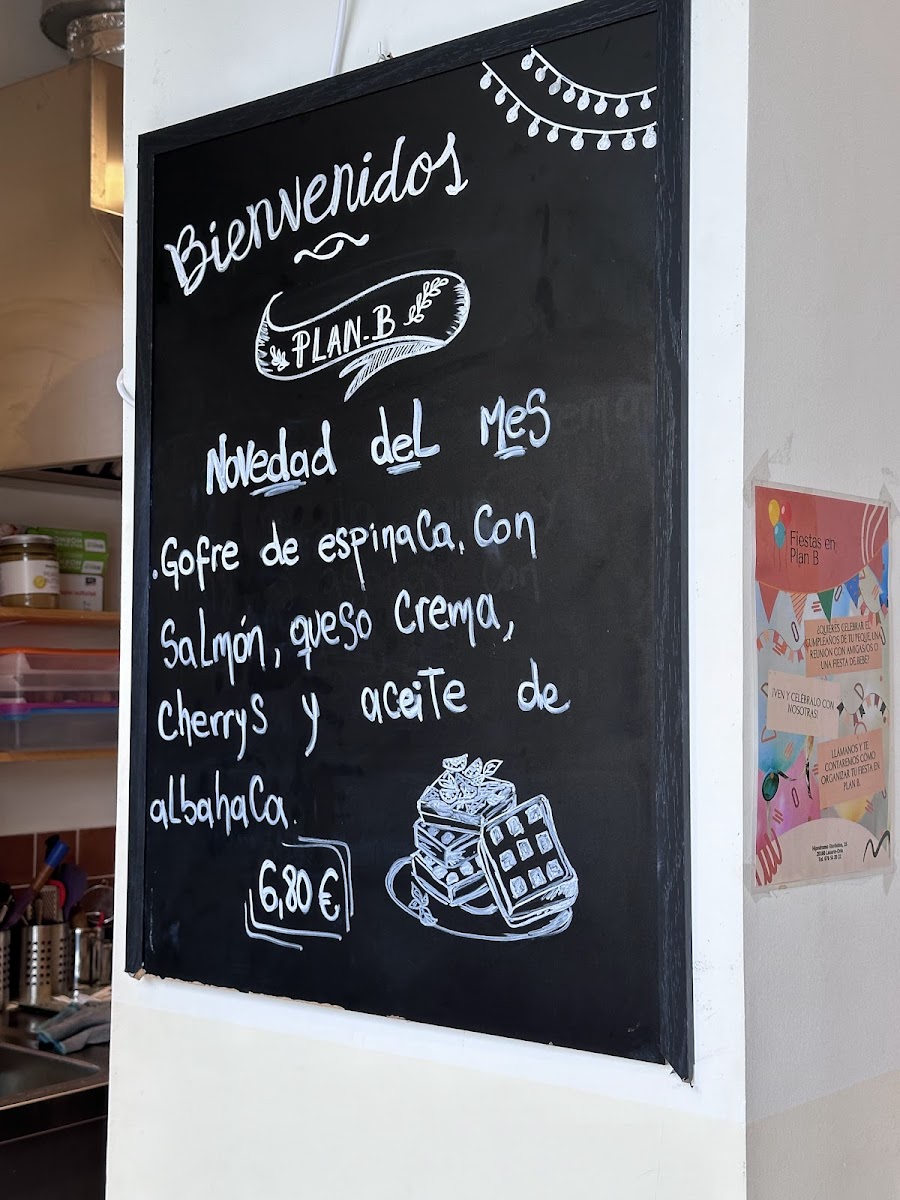 Bienvenidos
PLAN-B
Novedad del Mes
.Gofre de espinaca, con
Salmón, queso Crema,
Cherrys y aceite de
albahaca.
6,80 €
Fiestas en
Plan B
¿QUIERES CELEBRAR EL
CUMPLEAÑOS DE TU PEQUE, UNA
REUNIÓN CON AMIGAS/OS O
UNA FIESTA DE BEBÉ?
¡VEN Y CELÉBRALO CON
NOSOTRAS!
LLAMANOS Y TE
CONTAREMOS CÓMO
ORGANIZAR TU FIESTA EN
PLAN B.